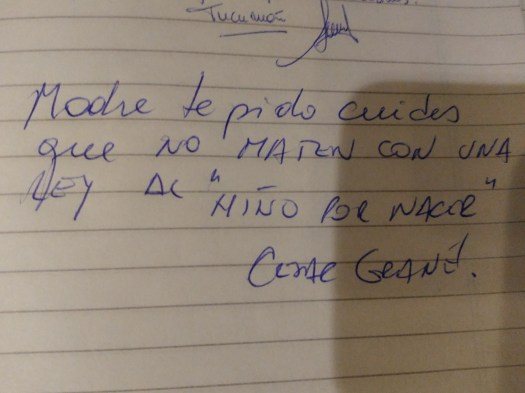 Tucumán
Madre te pido cuides
que NO MATEN CON UNA
LEY AL "NIÑO POR NACER"